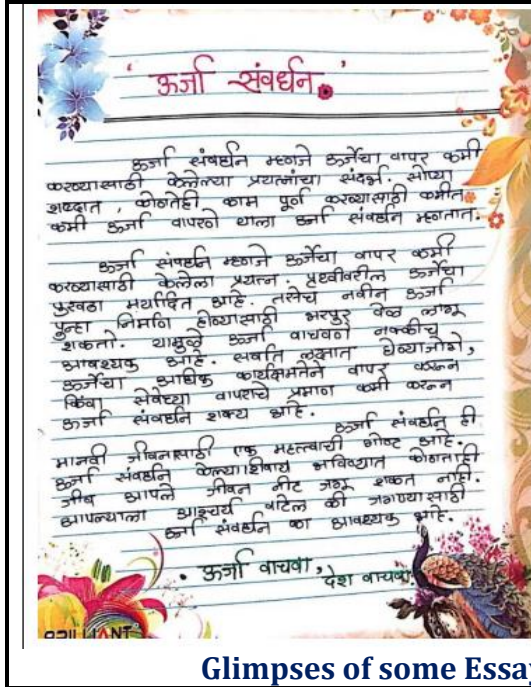 ' ऊर्जा संवर्धन '
ऊर्जा संवर्धन म्हणजे ऊर्जेचा वापर कमी
करण्यासाठी केलेल्या प्रयत्नांचा संदर्भ. सोप्या
शब्दात , कोणतेही काम पूर्ण करण्यासाठी कमीत
कमी ऊर्जा वापरणे याला ऊर्जा संवर्धन म्हणतात.
ऊर्जा संवर्धन म्हणजे ऊर्जेचा वापर कमी
करण्यासाठी केलेला प्रयत्न. पृथ्वीवरील ऊर्जेचा
पुरवठा मर्यादित आहे. तसेच नवीन ऊर्जा
पुन्हा निर्माण होण्यासाठी भरपूर वेळ लागू
शकतो. यामुळे ऊर्जा वाचवणे नक्कीच
आवश्यक आहे. सर्वात लक्षात घेण्याजोगे,
ऊर्जेचा अधिक कार्यक्षमतेने वापर करून
किंवा सेवेच्या वापराचे प्रमाण कमी करून
ऊर्जा संवर्धन शक्य आहे.
ऊर्जा संवर्धन ही
मानवी जीवनासाठी एक महत्त्वाची गोष्ट आहे.
ऊर्जा संवर्धन केल्याशिवाय भविष्यात कोणताही
जीव आपले जीवन नीट जगू शकत नाही.
आपल्याला आश्चर्य वाटेल की जगण्यासाठी
ऊर्जा संवर्धन का आवश्यक आहे.
· ऊर्जा वाचवा , देश वाचवा
BRILLIANT
Glimpses of some Essay